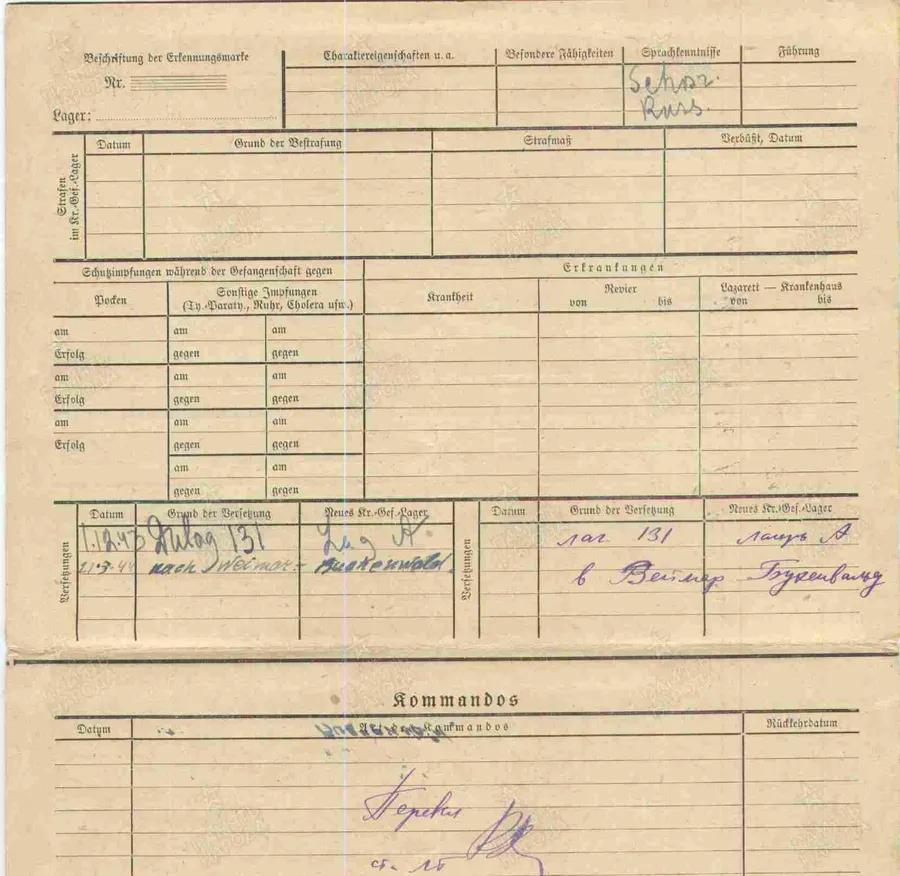 Beschriftung der Erkennungsmarke
Nr.
Lager:
Charaktereigenschaften u. a.
Besondere Fähigkeiten
Sprachkenntnisse
Führung
Russ.
Strafen im Kr.-Gef.-Lager
Datum
Grund der Bestrafung
Strafmaß
Verbüßt, Datum
Schutzimpfungen während der Gefangenschaft gegen
Erkrankungen
Pocken
Sonstige Impfungen
(Ty.-Paraty., Ruhr, Cholera usw.)
Krankheit
Revier
von bis
Lazarett — Krankenhaus
von bis
am am am
Erfolg gegen gegen
am am am
Erfolg gegen gegen
am am am
Erfolg gegen gegen
am am
gegen gegen
Versetzungen
Datum Grund der Versetzung Neues Kr.-Gef.-Lager
1.12.43 Dulag 131 Lag A
nach Weimar - Buchenwald.
Versetzungen
Datum Grund der Versetzung Neues Kr.-Gef.-Lager
лаг 131 лагерь А
в Веймар Бухенвальд
Kommandos
Datum Art des Kommandos Rückkehrdatum
Перевел
ст. лт